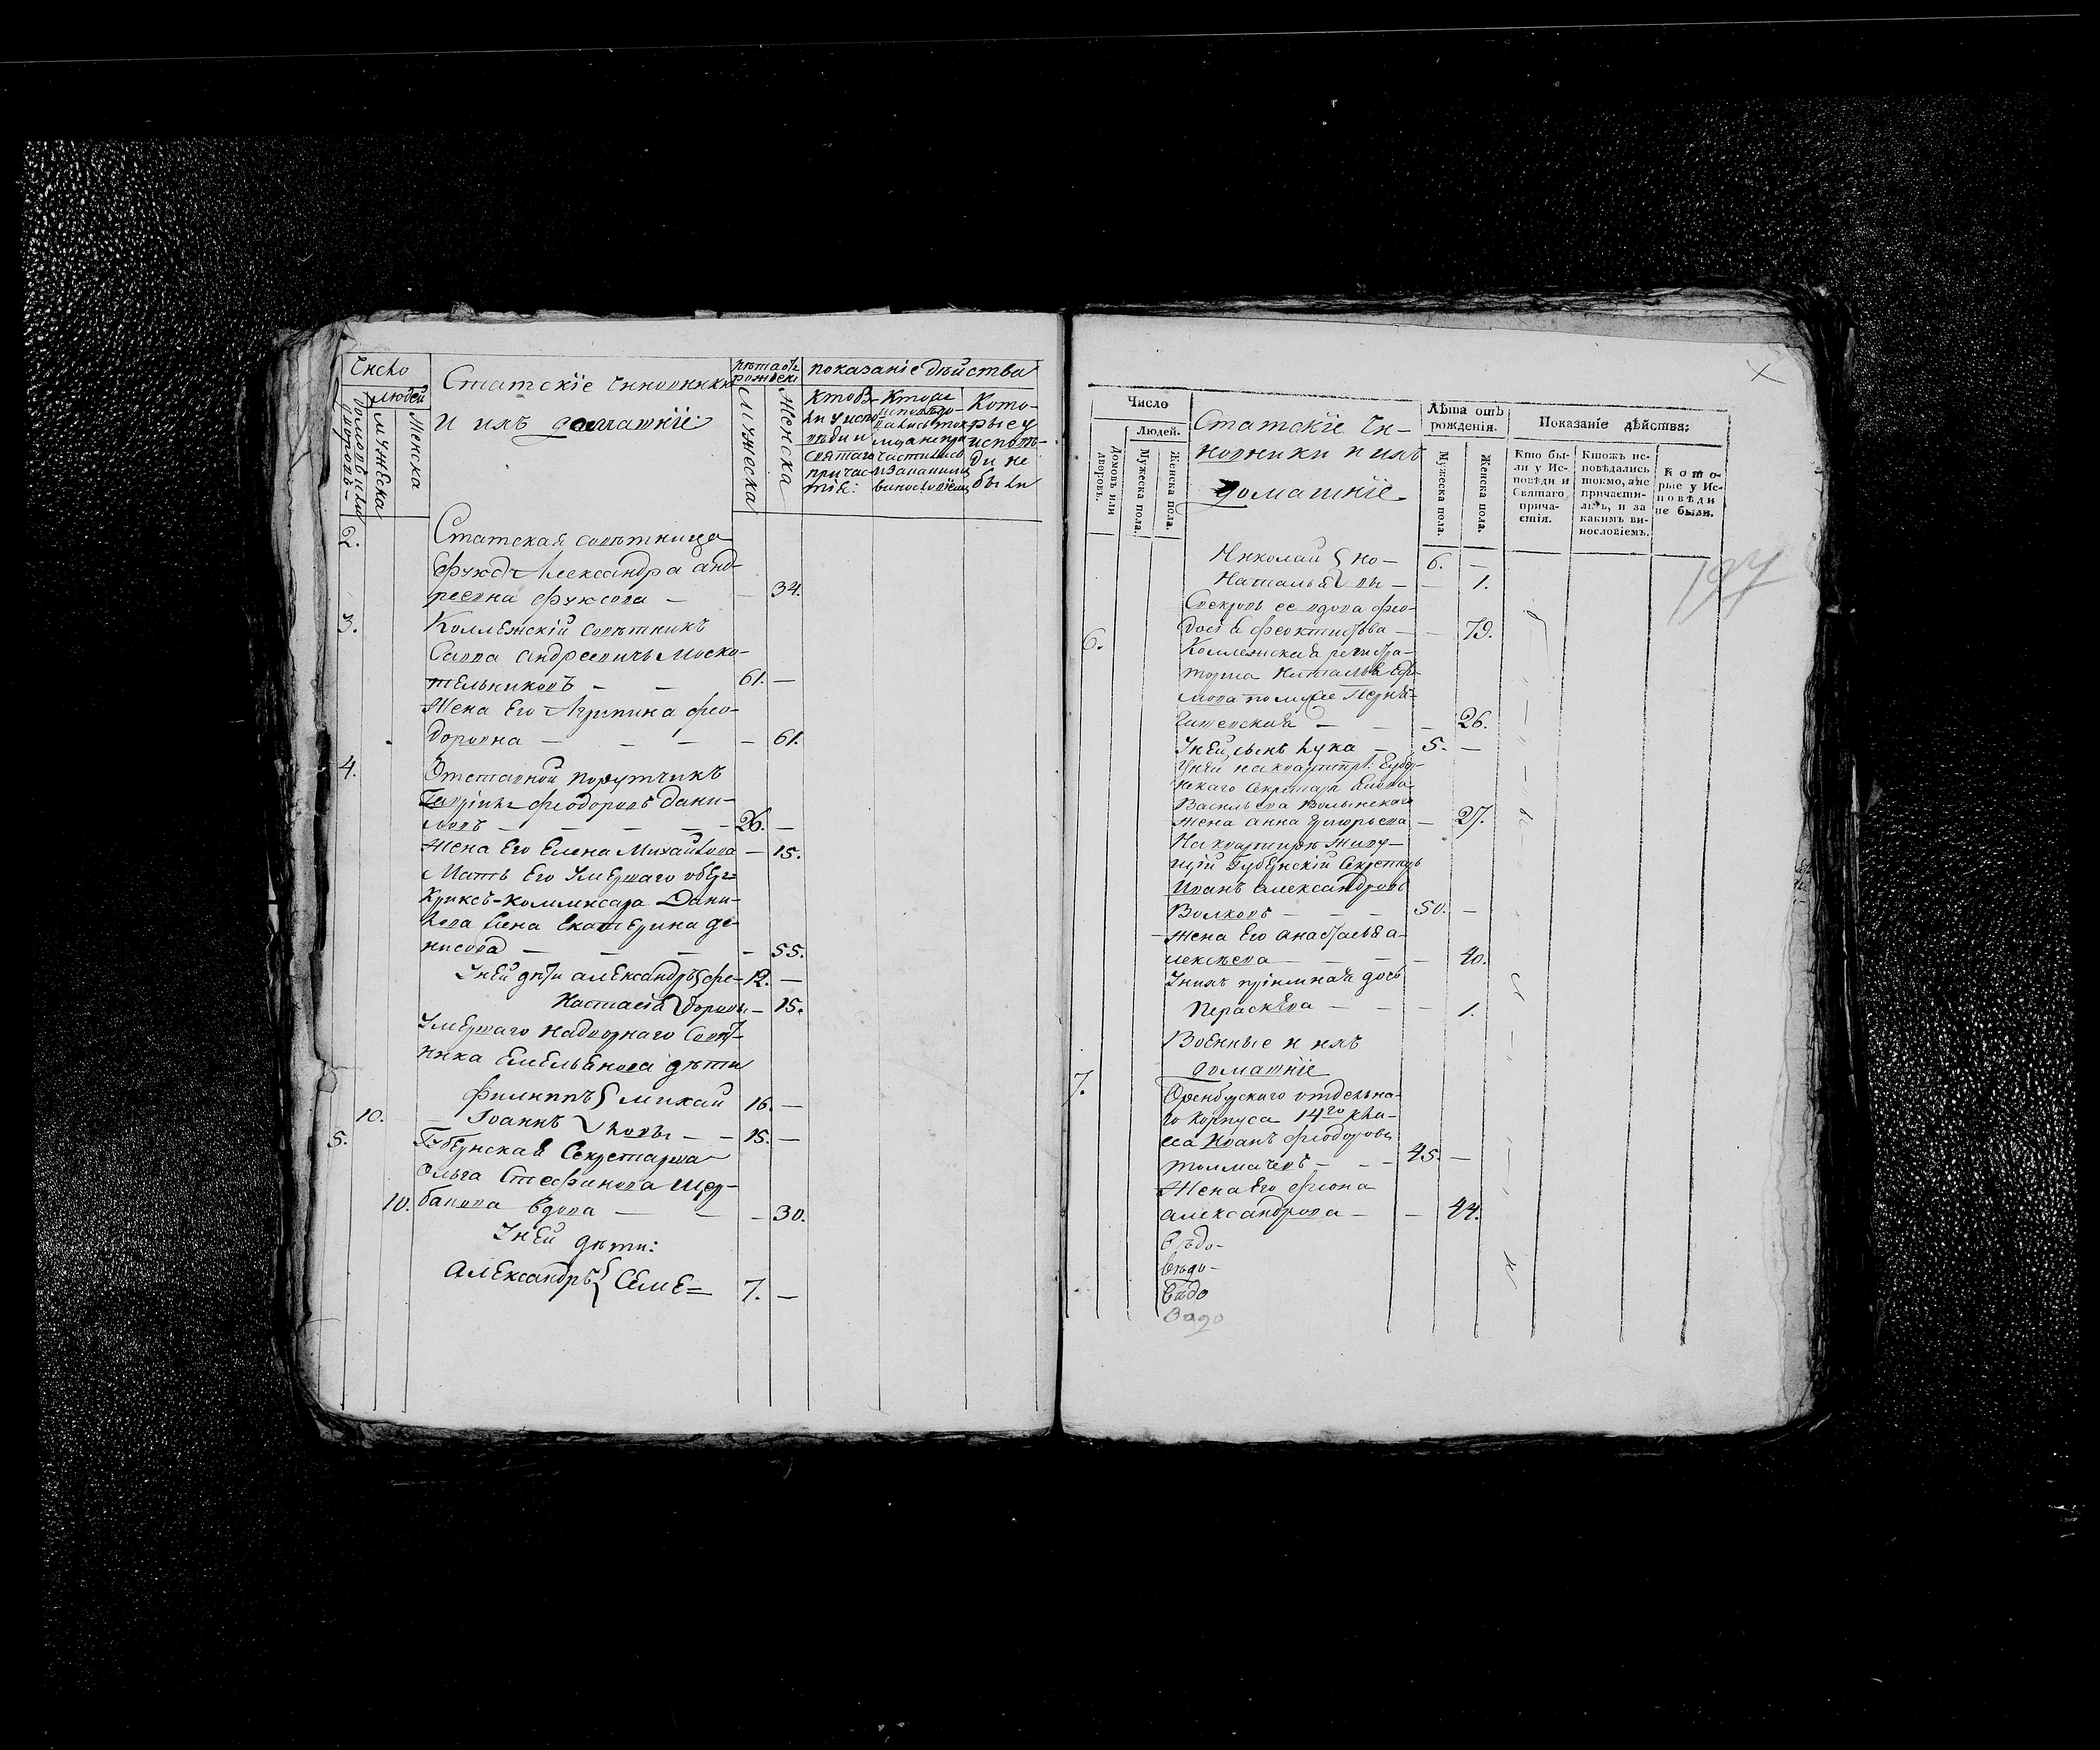 Число
людей
Домовъ или дворовъ
Мужеска
Женска
Статскіе Чиновники
и ихъ домашніе
лѣта отъ
рожденія
Мужеска
Женска
показаніе дѣйства
Кто бы-
ли у испо-
вѣди и
святаго
причас-
тія:
Которые
исповѣдо-
вались ток
мо а не при
частились
и за какимъ
винословіемъ
Кото-
рые у
исповѣ-
ди не
были
2.
Статская совѣтница
Александра анд-
реевна Фуксова — — 34.
3. Коллежскій совѣтникъ
Савва андреевичъ Моско-
тельниковъ — — 61. —
Жена Его Агрипина фео-
доровна — — — — 61.
4. Отставной порутчикъ
Гавріилъ феодоровъ Дани-
ловъ — — — — — 26. —
Жена Его Елена Михайлова — 15.
Мать Его Умершаго обер-
Криксъ-коммисара Дани-
лова жена Екатерина де-
нисова — — — — 55.
У ней дѣти александръ } фе- 12. —
Настасія } доровы — 15.
Умершаго надворнаго Совѣт-
ника Емельянова дѣти
Филиппъ } михай 16. —
10. Іоаннъ } ловы — — 15. —
5. Губернская Секретарша
Ольга Стефанова Щер-
10. бакова вдова — — — 30.
У ней дѣти:
Александръ } Семе= 7. —
Число
Людей.
Домовъ или дворовъ.
Мужеска пола.
Женска пола.
Статскіе Чи-
новники и ихъ
домашніе
Лѣта отъ
рожденія.
Мужеска пола.
Женска пола.
Показаніе дѣйства:
Кто бы-
ли у Ис-
повѣди и
Святаго
прича-
стія.
Ктожъ ис-
повѣдались
токмо, а не
причасти-
лись, и за
какимъ ви-
нословіемъ.
Кото-
рые у Ис-
повѣди
не были.
197
Николай } но- 6. —
Наталья } вы — — 1.
Свекровь ее вдова фео-
досія феоктистова — — 79.
6. Коллежская регистра-
торша Наталья
— 26.
У ней сынъ Лука — 5. —
У ней на квартирѣ: Губер-
нскаго Секретаря
Васильева Волынскаго
жена Анна Григорьева — 27.
На квартирѣ живу-
щій Губернскій Секретарь
Иванъ александровъ
Волковъ — — — 50. —
Жена Его анастасья а-
лексѣева — — — — 40.
У нихъ пріимная дочь
Параскева — — — 1.
Военные и ихъ
домашніе
7. Оренбургскаго отдельна-
го корпуса 14го кла-
са Иванъ феодоровъ
толмачевъ — — — 45. —
Жена Его феона
александрова — — 44.
Вѣдо-
Вѣдо-
Вѣдо